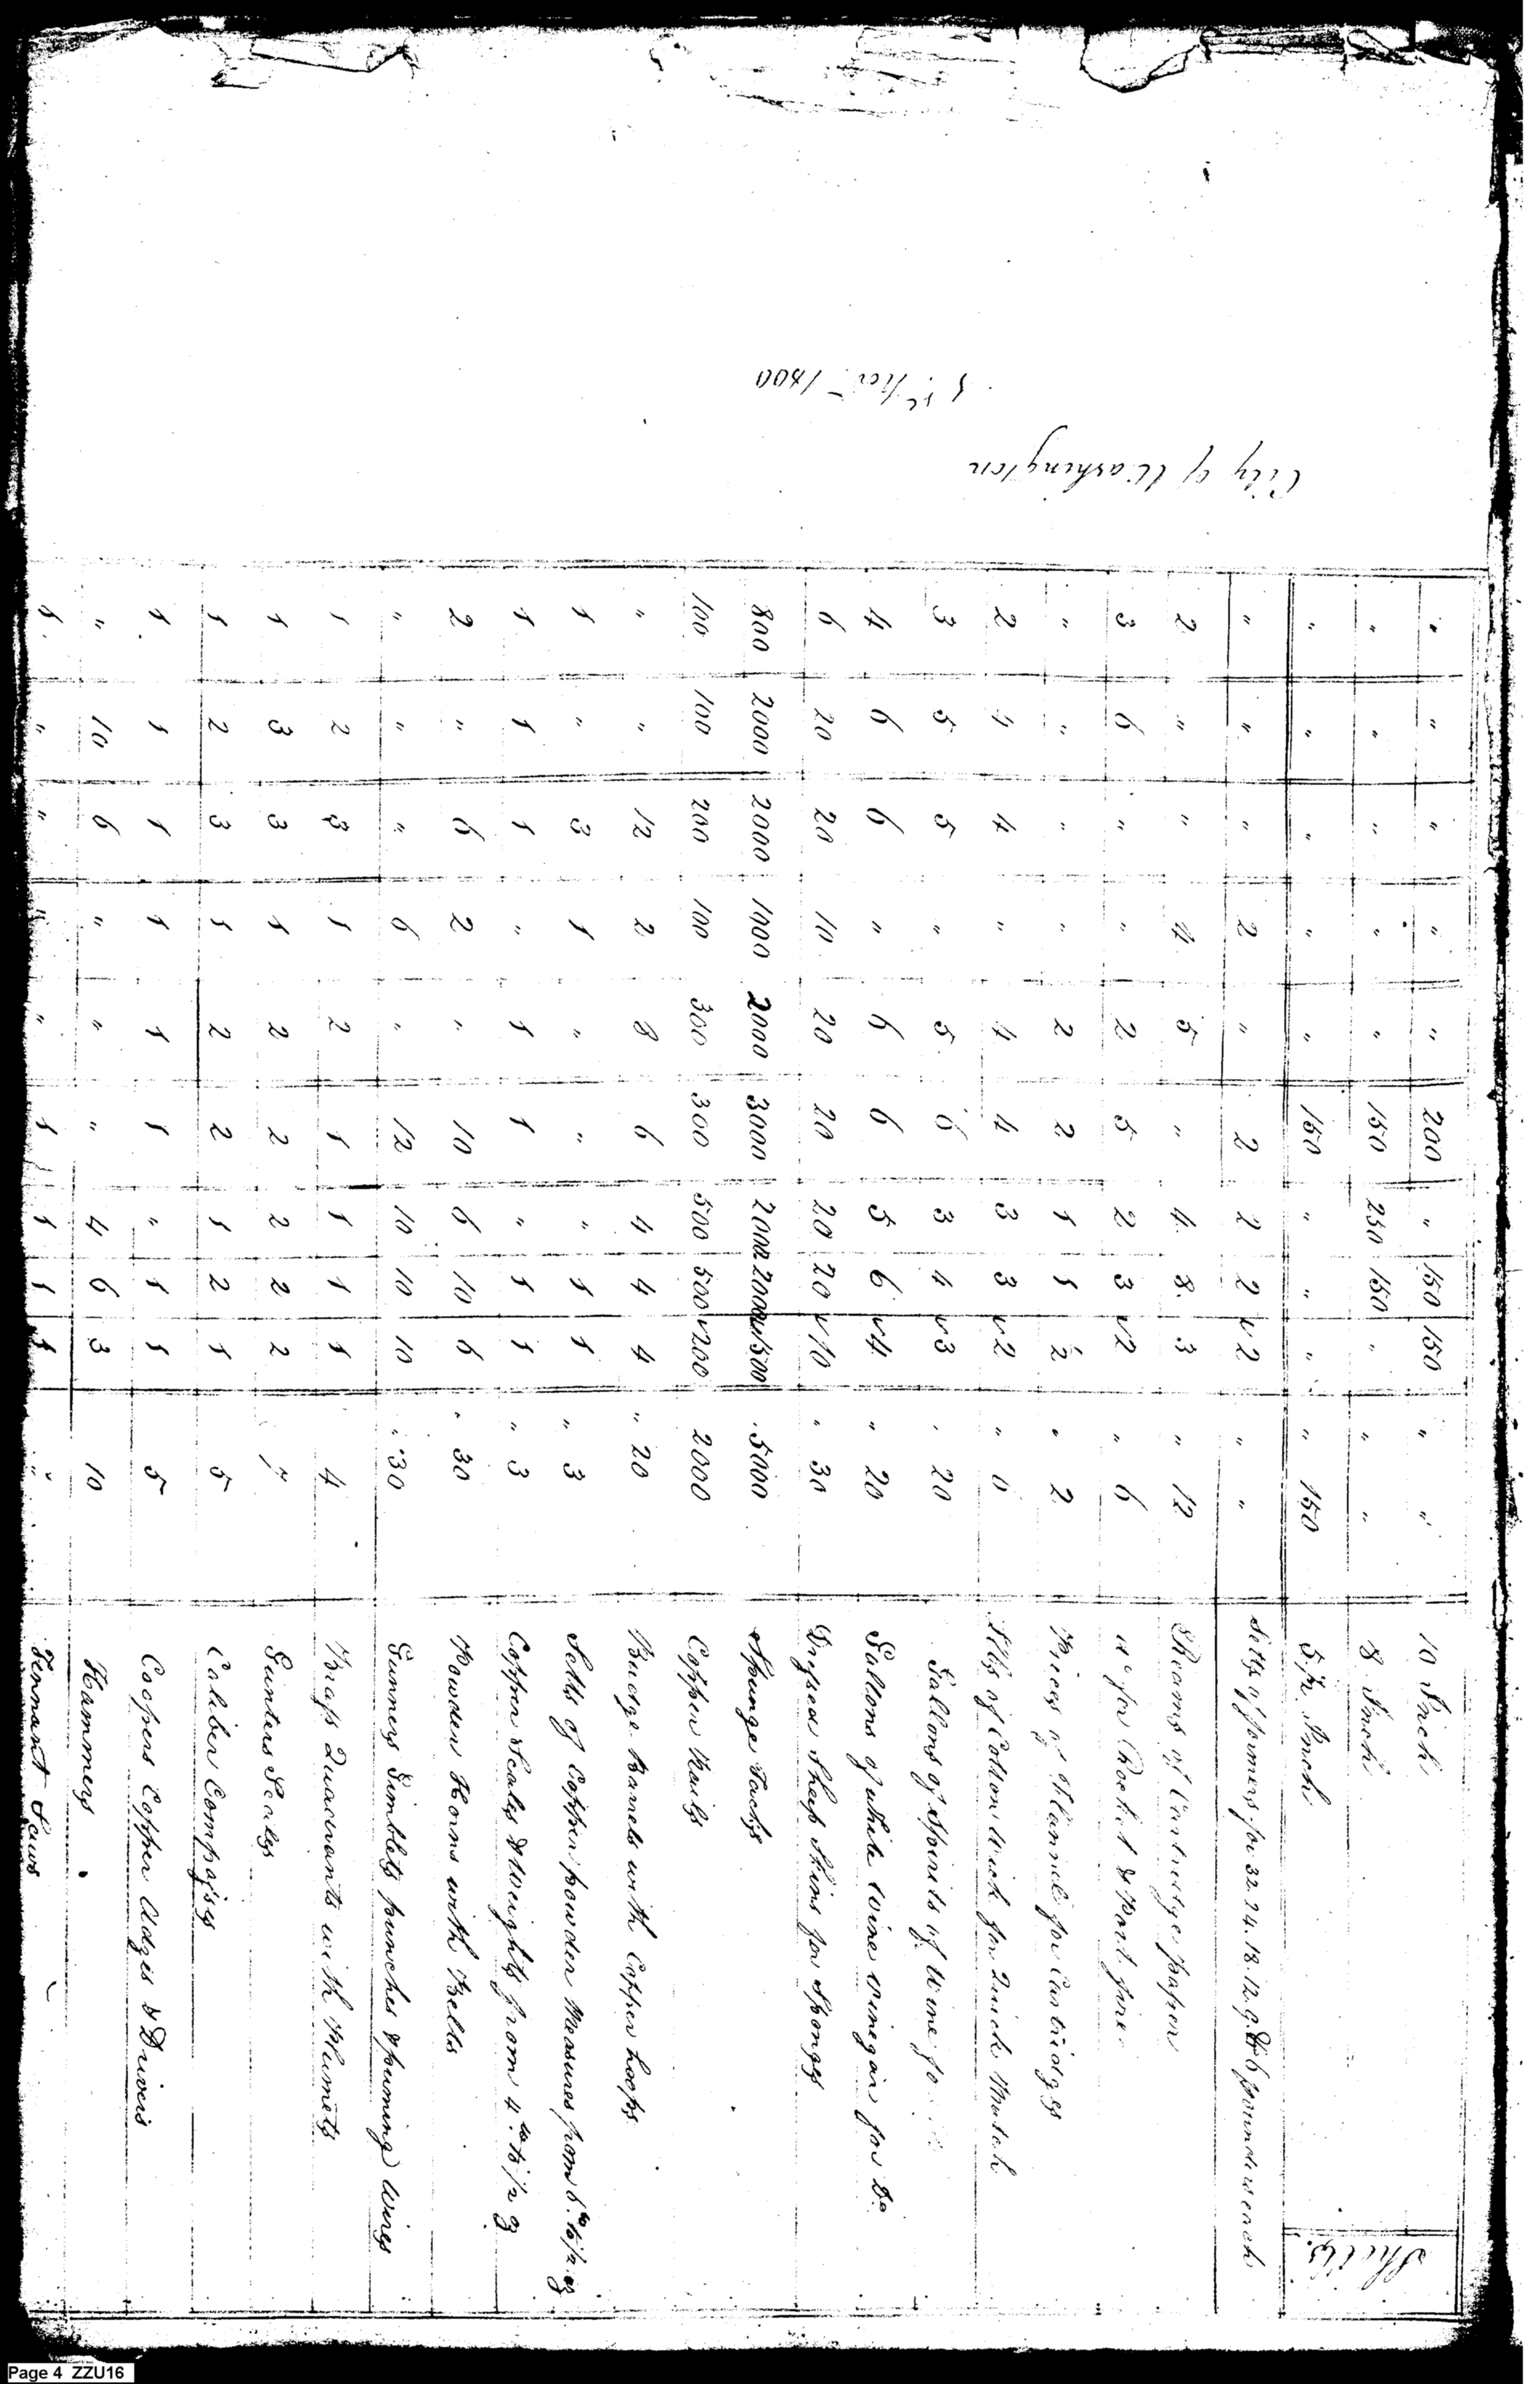 City of Washington
5th Novr 1800
Shells.
" " " " " 200 " 150 150 " " 10 Inch
" " " " " 150 250 150 " " " 8 Inch
" " " " " 150 " " " " 150 5½ Inch
" " " 2 " 2 2 2 2 " " Setts of formers for 32. 24. 18. 12. 9. & 6 pounders each
2 " " 4 5 " 4 8 3 " 12 Reams of Cartridge paper
3 6 " " 2 5 2 3 2 " 6 do for Rocket & Port fire
" " " " 2 2 1 1 2 " 2 Pieces of Flannel for Cartridges
2 4 4 " 4 4 3 3 2 " 0 lbs of Cotton Wick for Quick Match
3 5 5 " 5 6 3 4 3 " 20 Gallons of Spirits of Wine fo
4 6 6 " 6 6 5 6 4 " 20 Gallons of white Wine vinegar for Do
6 20 20 10 20 20 20 20 10 " 30 Dressed Sheep Skins for Sponges
800 2000 2000 1000 2000 3000 2000 2000 1500 5000 Spunge Tacks
100 100 200 100 300 300 500 500 200 2000 Copper Nails
" " 12 2 8 6 4 4 4 " 20 Budge Barrels with Copper hoops
1 " 3 1 " " " 1 1 " 3 Setts of Copper powder Measures from 6 lb to ½ oz
1 1 1 " 1 1 " 1 1 " 3 Copper Scales & Weights from 4 lb to ½ oz
2 " 6 2 " 10 6 10 6 " 30 Powder Horns with Belts
" " " 6 " 12 10 10 10 " 30 Gunners Gimblets punches & priming Wires
1 2 3 1 2 1 1 1 1 4 Brass Quadrants with Plumets
1 3 3 1 2 2 2 2 2 7 Gunters Scales
1 2 3 1 2 2 1 2 1 5 Caliber Compasses
1 1 1 1 1 1 " 1 1 5 Coopers Copper Adzes & Drivers
" 10 6 " " " 4 6 3 10 Hammers
1 " " " " 1 1 1 1 " Tennant Saws
Page 4 ZZU16